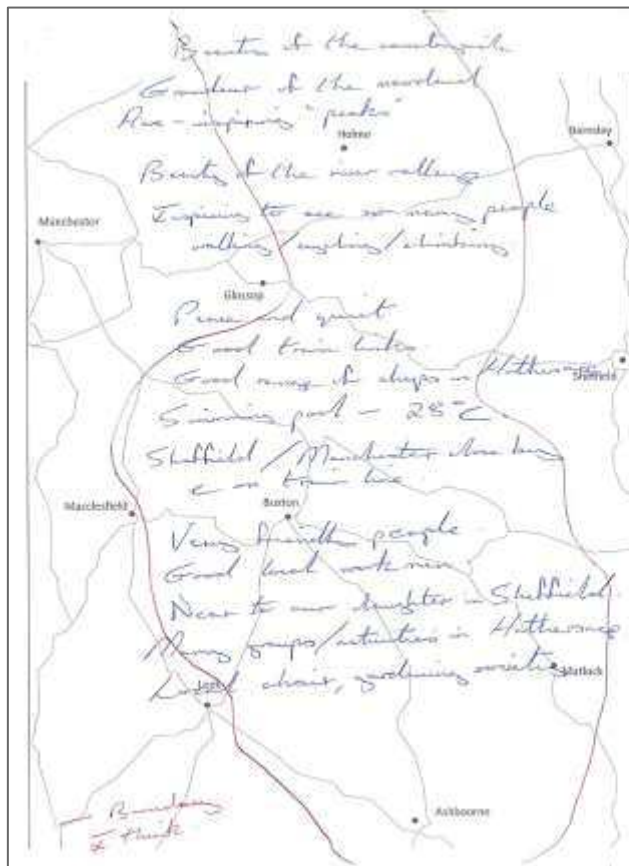 Beauty of the countryside
Grandeur of the moorland
Awe-inspiring "peaks"
Holme
Barnsley
Beauty of the river valleys
Inspiring to see so many people
Manchester
walking/cycling/climbing
Glossop
Peace and quiet
Good train links
Good range of shops in Hathersage
Sheffield
Swimming pool - 28°C.
Sheffield / Manchester close by
& on train line
Macclesfield
Buxton
Very friendly people
Good local workmen
Near to our daughter in Sheffield.
Many groups/activities in Hathersage
Local choir, gardening society
Matlock
Leek
Boundary
I think
Ashbourne